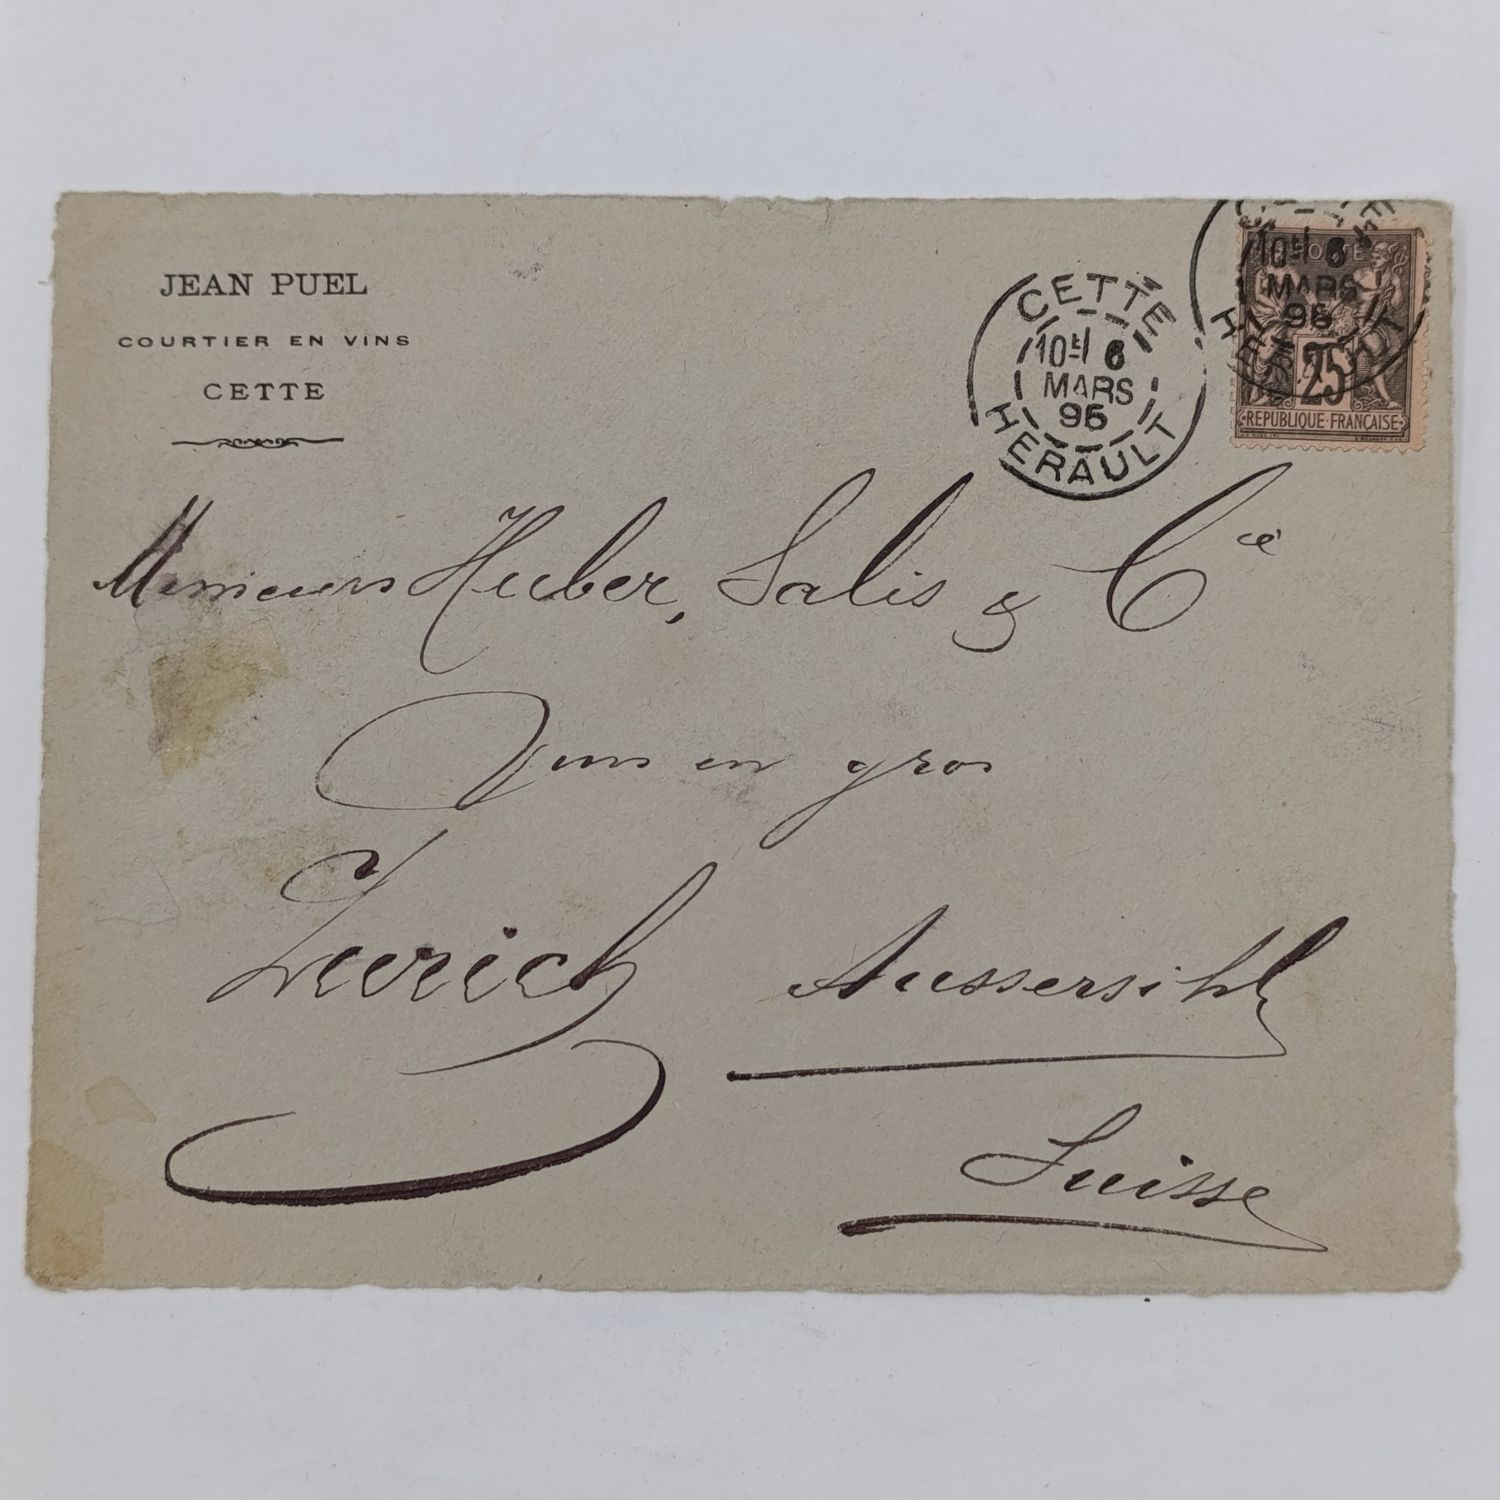 JEAN PUEL
COURTIER EN VINS
CETTE
CETTE
10ᴱ/ 6
MARS
95
HERAULT
10ᴱ/ 6
MARS
95
25
REPUBLIQUE FRANÇAISE
Messieurs Huber, Salis & Cie
Vins en gros
Zurich Aussersihl
Suisse